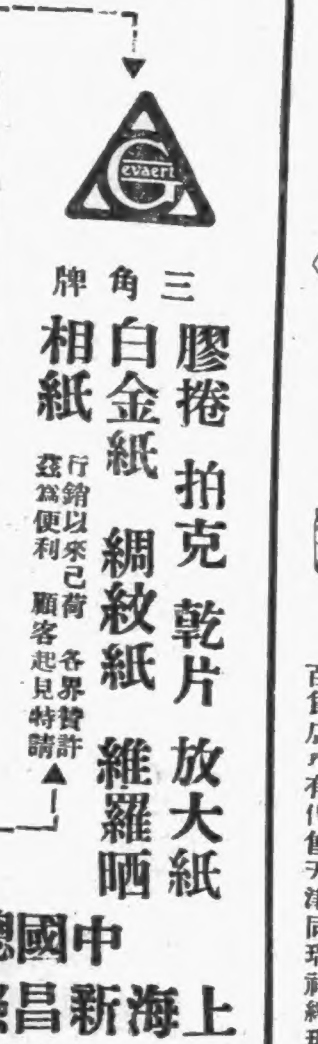 Gevaert
三角牌
膠捲 拍克 乾片 放大紙
白金紙 綢紋紙 維羅晒
相紙
行銷以來已荷 各界贊許
茲為便利 顧客起見特請
中國總
上海新昌